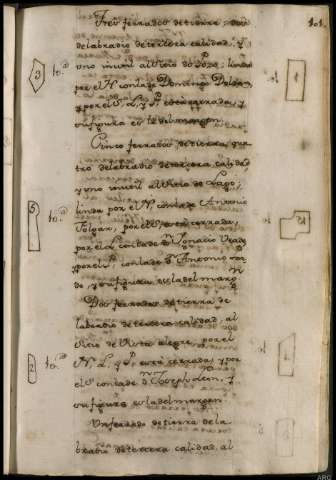 101
Tres ferrados de tierra, dos
de labradio de tercera calidad, y
uno inutil al sitio do Pozo, linda
por el N. con la de Domingo
por el S. L. y P. esta cerrada, y
su figura es la del margen.
Cinco ferrados de tierra, qua
tro de labradio de tercera calidad,
y uno inutil al sitio de Lago,
linda por el N. con la de Antonio
Folgar, por el esta cerrada,
por el L. con la de Dn. Ignacio
por el P. con la de Dn. Antonio
de, y su figura es la del marg.n
Dos ferrados de tierra de
labradio de tercera calidad, al
sitio de Vista alegre, por el
N. L. y P. esta cerrada, y por
el S. con la de Dn. Joseph Leon, y
su figura es la del margen.
Un ferrado de tierra de la
bradio de tercera calidad, al
3
5
2